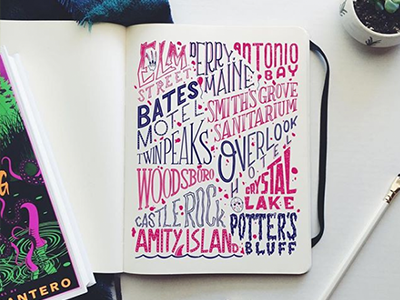 ELM
STREET
DERRY
MAINE
ANTONIO
BAY
BATES
MOTEL
SMITH'S GROVE
SANITARIUM
TWIN PEAKS
OVERLOOK
HOTEL
WOODSBORO
CRYSTAL
LAKE
CASTLE ROCK
AMITY ISLAND
POTTER'S
BLUFF
G
ANTERO